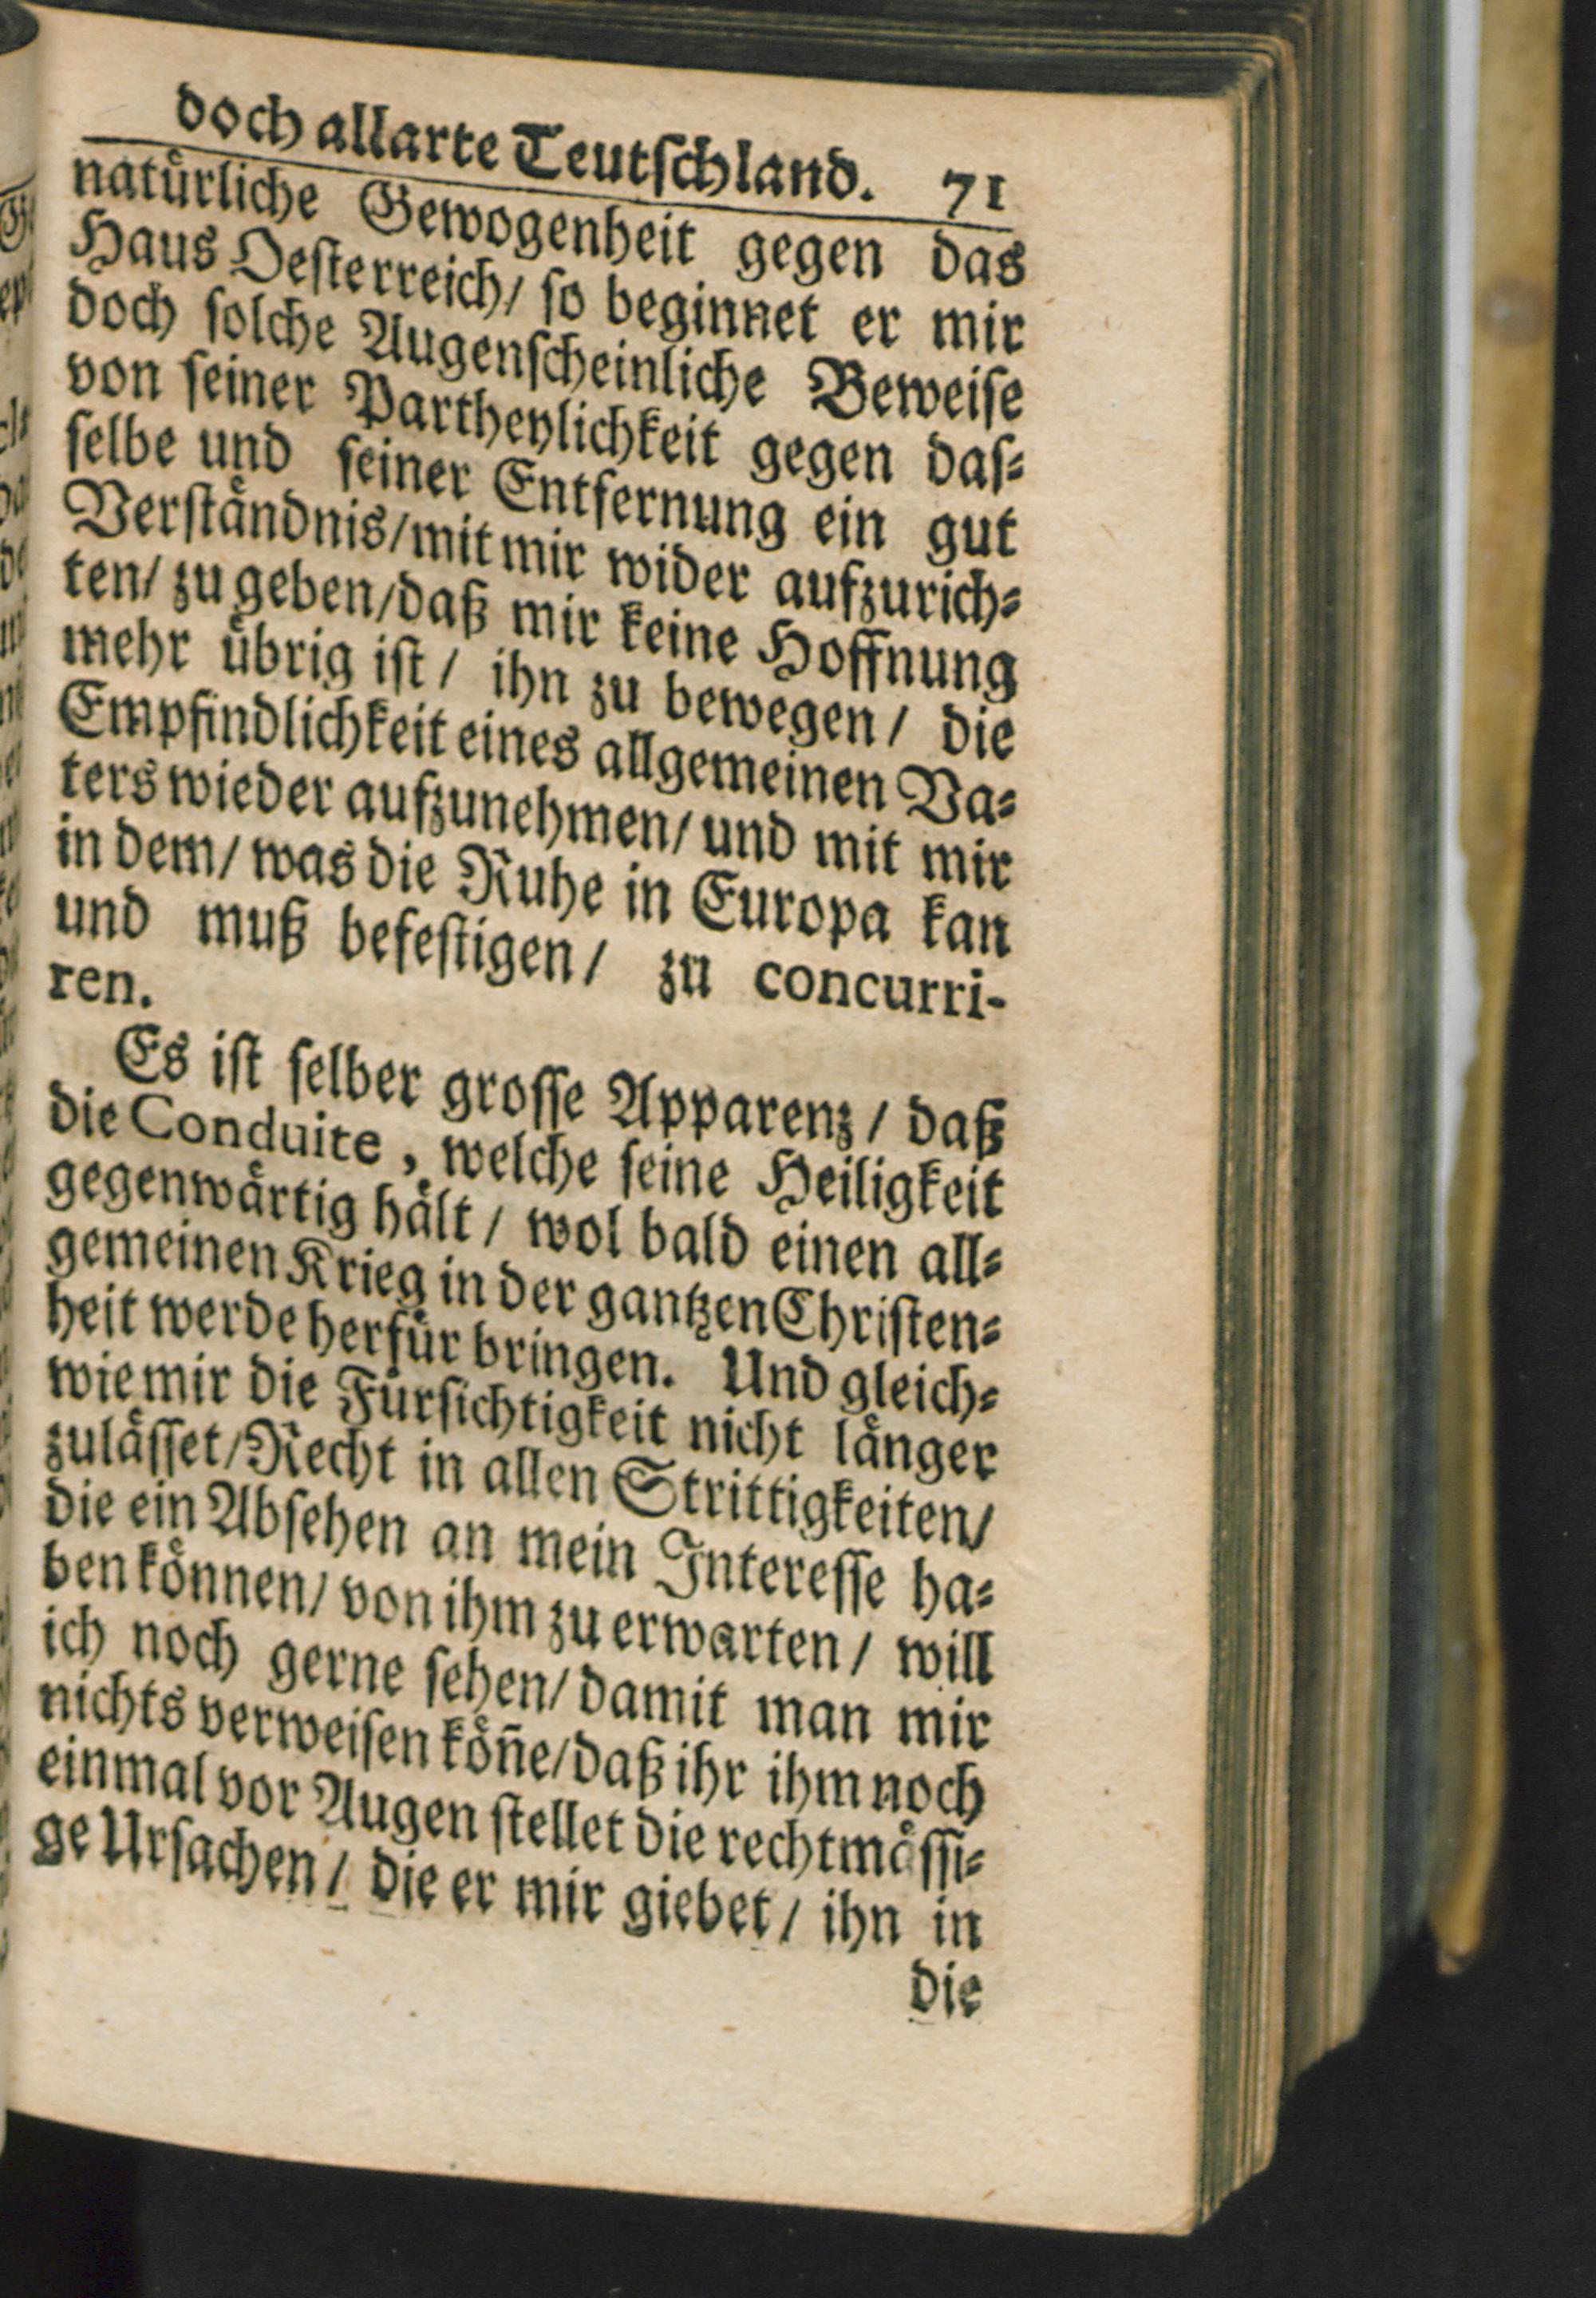 doch allarte Teutschland. 71
natürliche Gewogenheit gegen das
Haus Oesterreich/ so beginnet er mir
doch solche Augenscheinliche Beweise
von seiner Partheylichkeit gegen das⸗
selbe und seiner Entfernung ein gut
Verständnis/mit mir wider aufzurich⸗
ten/ zu geben/daß mir keine Hoffnung
mehr übrig ist/ ihn zu bewegen/ die
Empfindlichkeit eines allgemeinen Va⸗
ters wieder aufzunehmen/ und mit mir
in dem/ was die Ruhe in Europa kan
und muß befestigen/ zu concurri-
ren.
Es ist selber grosse Apparenz/ daß
die Conduite, welche seine Heiligkeit
gegenwärtig hält/ wol bald einen all⸗
gemeinen Krieg in der gantzen Christen⸗
heit werde herfür bringen. Und gleich⸗
wie mir die Fürsichtigkeit nicht länger
zulässet/Recht in allen Strittigkeiten/
die ein Absehen an mein Interesse ha⸗
ben können/ von ihm zu erwarten/ will
ich noch gerne sehen/ damit man mir
nichts verweisen köñe/daß ihr ihm noch
einmal vor Augen stellet die rechtmässi⸗
ge Ursachen/ die er mir giebet/ ihn in
die